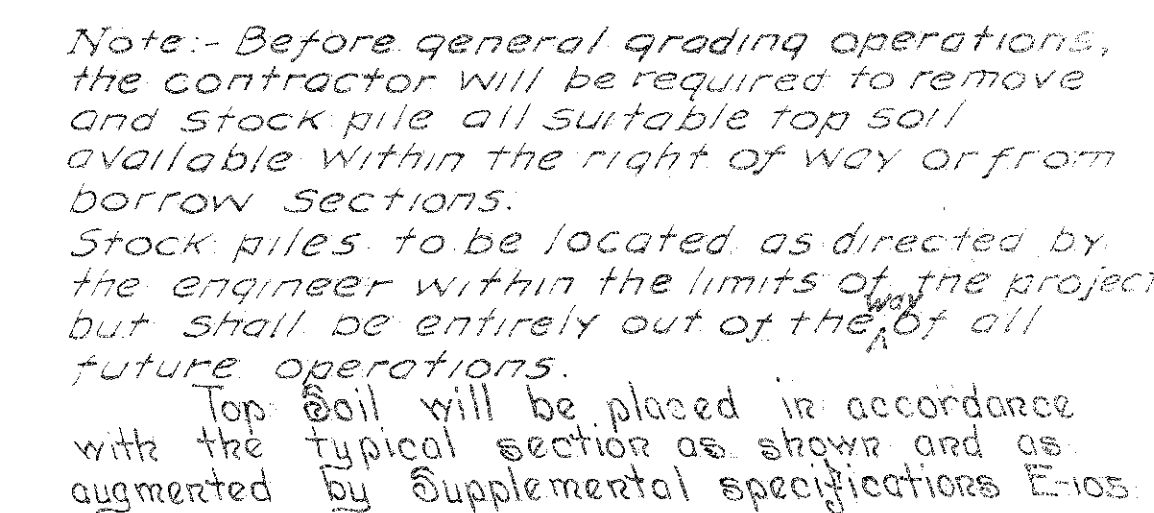 Note:- Before general grading operations,
the contractor will be required to remove
and stock pile all suitable top soil
available within the right of way or from
borrow sections.
Stock piles to be located as directed by
the engineer within the limits of the project
but shall be entirely out of the way of all
future operations.
Top Soil will be placed in accordance
with the typical section as shown and as
augmented by Supplemental specifications E-105